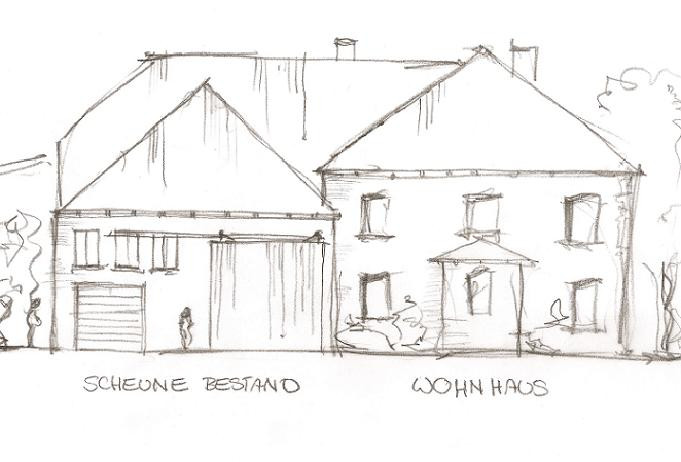 SCHEUNE BESTAND
WOHNHAUS